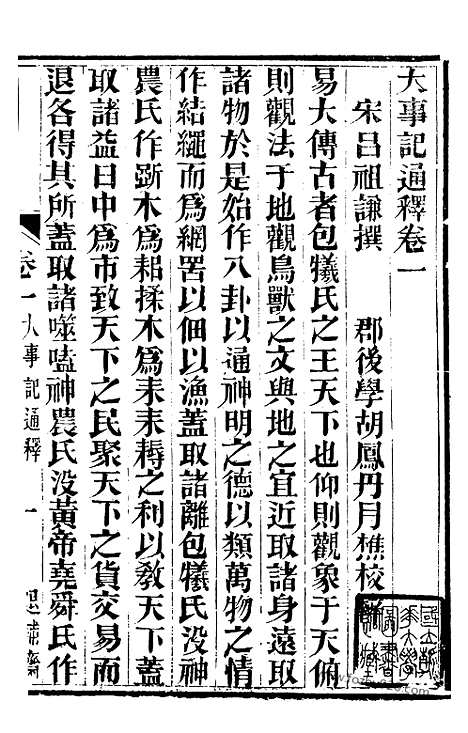 大事記通釋卷一
宋呂祖謙撰　郡後學胡鳳丹月樵校
易大傳古者包犧氏之王天下也仰則觀象于天俯
則觀法于地觀鳥獸之文與地之宜近取諸身遠取
諸物於是始作八卦以通神明之德以類萬物之情
作結繩而爲網罟以佃以漁蓋取諸離包犧氏没神
農氏作斲木爲耜揉木爲耒耒耨之利以敎天下蓋
取諸益日中爲市致天下之民聚天下之貨交易而
退各得其所蓋取諸噬嗑神農氏没黃帝堯舜氏作
卷一大事記通釋　一　退補齋